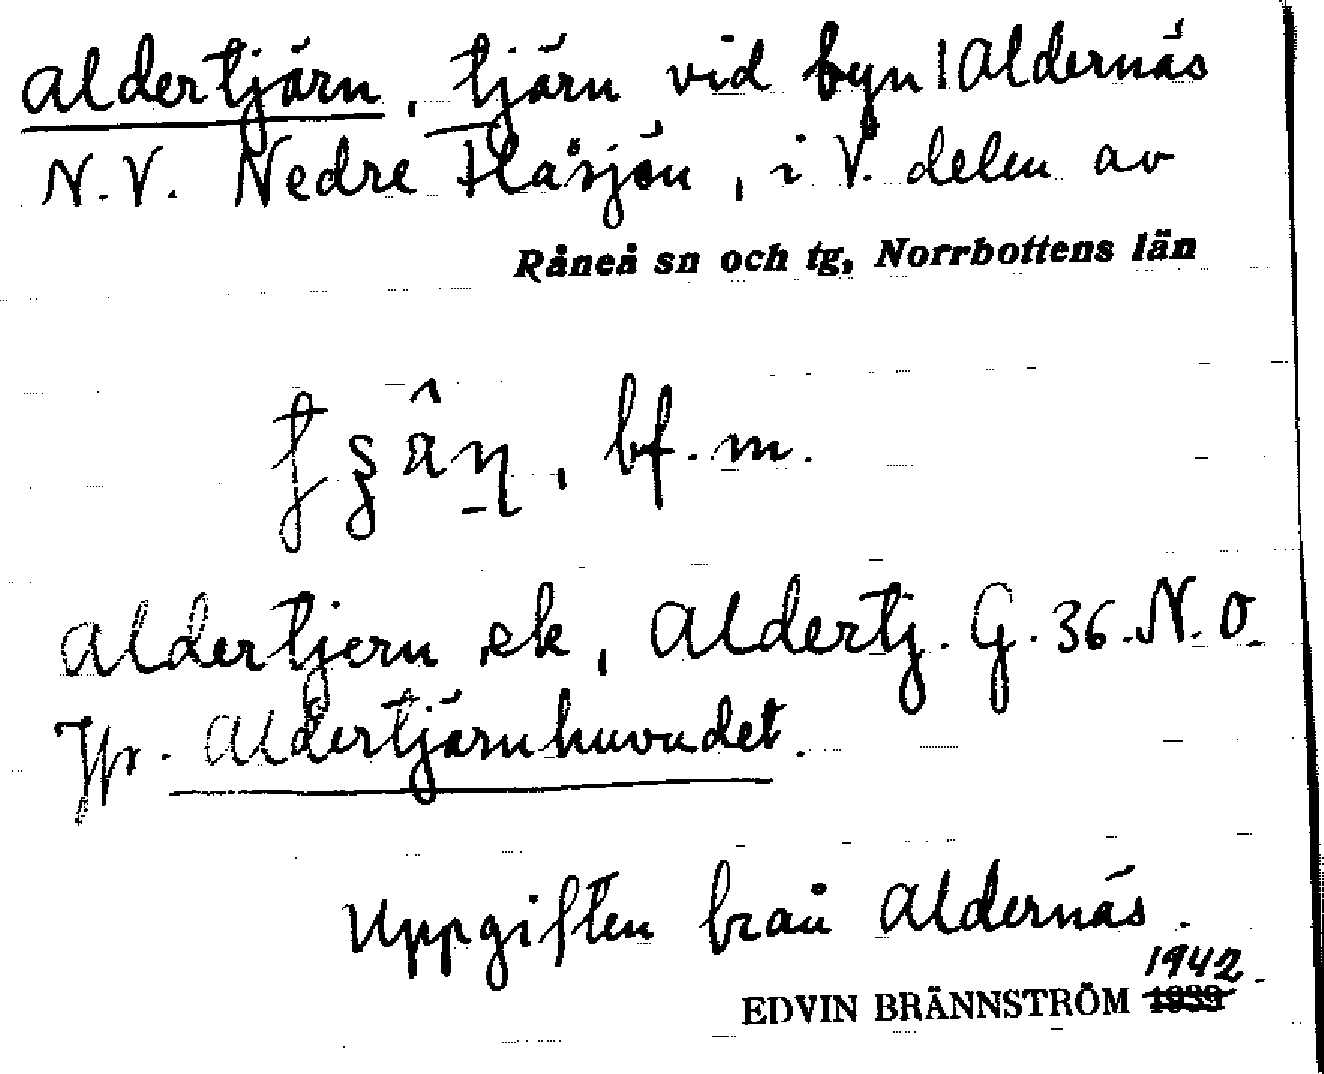 Aldertjärn, tjärn vid byn Aldernäs
N.V. Nedre Flåsjön, i V. delen av
Råneå sn och tg, Norrbottens län
bf. m.
Aldertjern ek, Aldertj. G. 36. N.O.
Jfr. Aldertjärnhuvudet.
Uppgiften från Aldernäs.
1942
EDVIN BRÄNNSTRÖM 1939